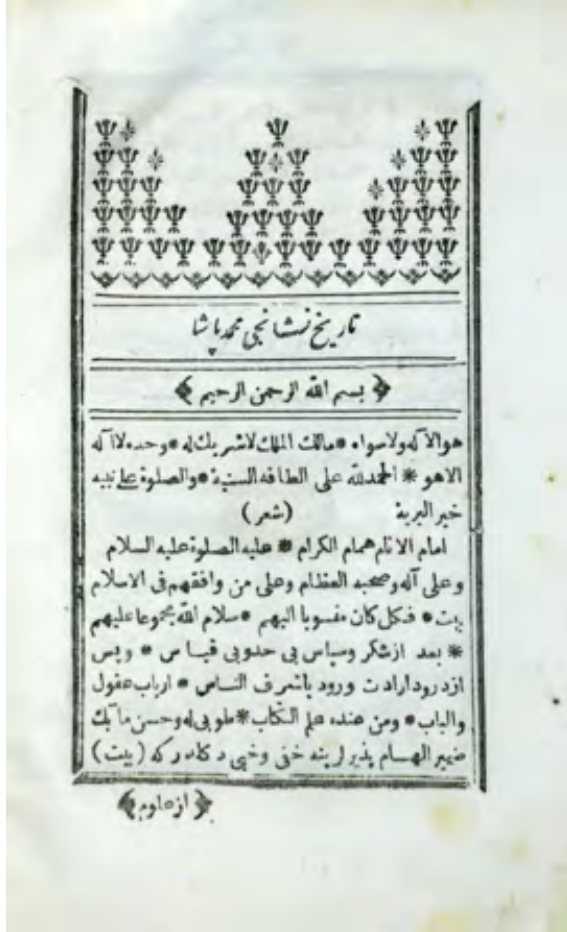 تاریخ نشانجی محمد پاشا
بسم الله الرحمن الرحيم
هو الا له ولا سواه * مالك الملك لا شريك له * وحده لا اله
الا هو * الحمد لله على الطافه السنية * والصلوة على نبيه
خير البرية (شعر)
امام الانام همام الكرام * عليه الصلوة عليه السلام
وعلى آله وصحبه العظام وعلى من وافقهم فى الاسلام
بيت * فكل كان منسوبا اليهم * سلام الله مجموعا عليهم
* بعد از شكر وسپاس بى حدوبى قياس * وپس
ازدرود ارادت ورود باشعرف النـاس * ارباب عقول
والباب * ومن عنده علم الكتاب * طوبى له وحسن مآبك
ضمير الهـام پذيرلرينه خفى وخبى دكلدركه (بيت)
(از علوم)